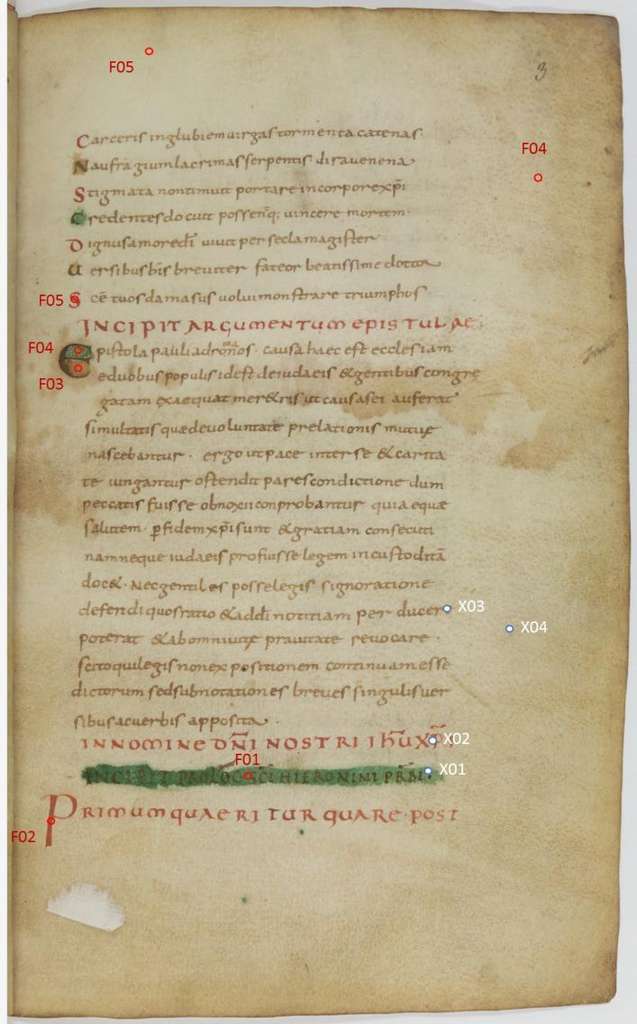 3
F05
F04
Carceris inglubiem uirgas tormenta catenas
Naufragium lacrimas serpentis dira uenena
Stigmata non timuit portare in corpore xp̄i
Credentes docuit possent q; uincere mortem
Dignus amore dī uiuit per secla magister
Uersibus bis breuiter fateor beatissime doctor
F05 Scē tuos damasus uolui monstrare triumphos
INCIPIT ARGUMENTUM EPISTULAE
F04 Epistola pauli ad romanos causa haec est ecclesiam
F03 e duobus populis id est de iudaeis & gentibus congre
gatam exaequat mer&ris ut causas ei auferat
simultatis quae de uoluntate prelationis mutuę
nascebantur. ergo ut pace inter se & carita
te iungantur ostendit pares condictione dum
peccatis fuisse obnoxii conprobantur quia equae
salutem p fidem xp̄i sunt & gratiam consecuti
nam neque iudaeis profuisse legem incustoditā
doc& . Nec gentiles posse legis signoratione
defendi quos ratio & ad dī notitiam per ducer X03
X04
poterat & ab omni uitę prauitate reuocare .
scito qui legis non expositionem continuam esse
dictorum sed subnotationes breues singulis uer
sibus ac uerbis apposita .
IN NOMINE DN̄I NOSTRI IHU XP̄I X02
F01
INCIPIT PROLOG SC̄I HIERONIMI PRBI X01
PRIMUM QUAERITUR QUARE POST
F02